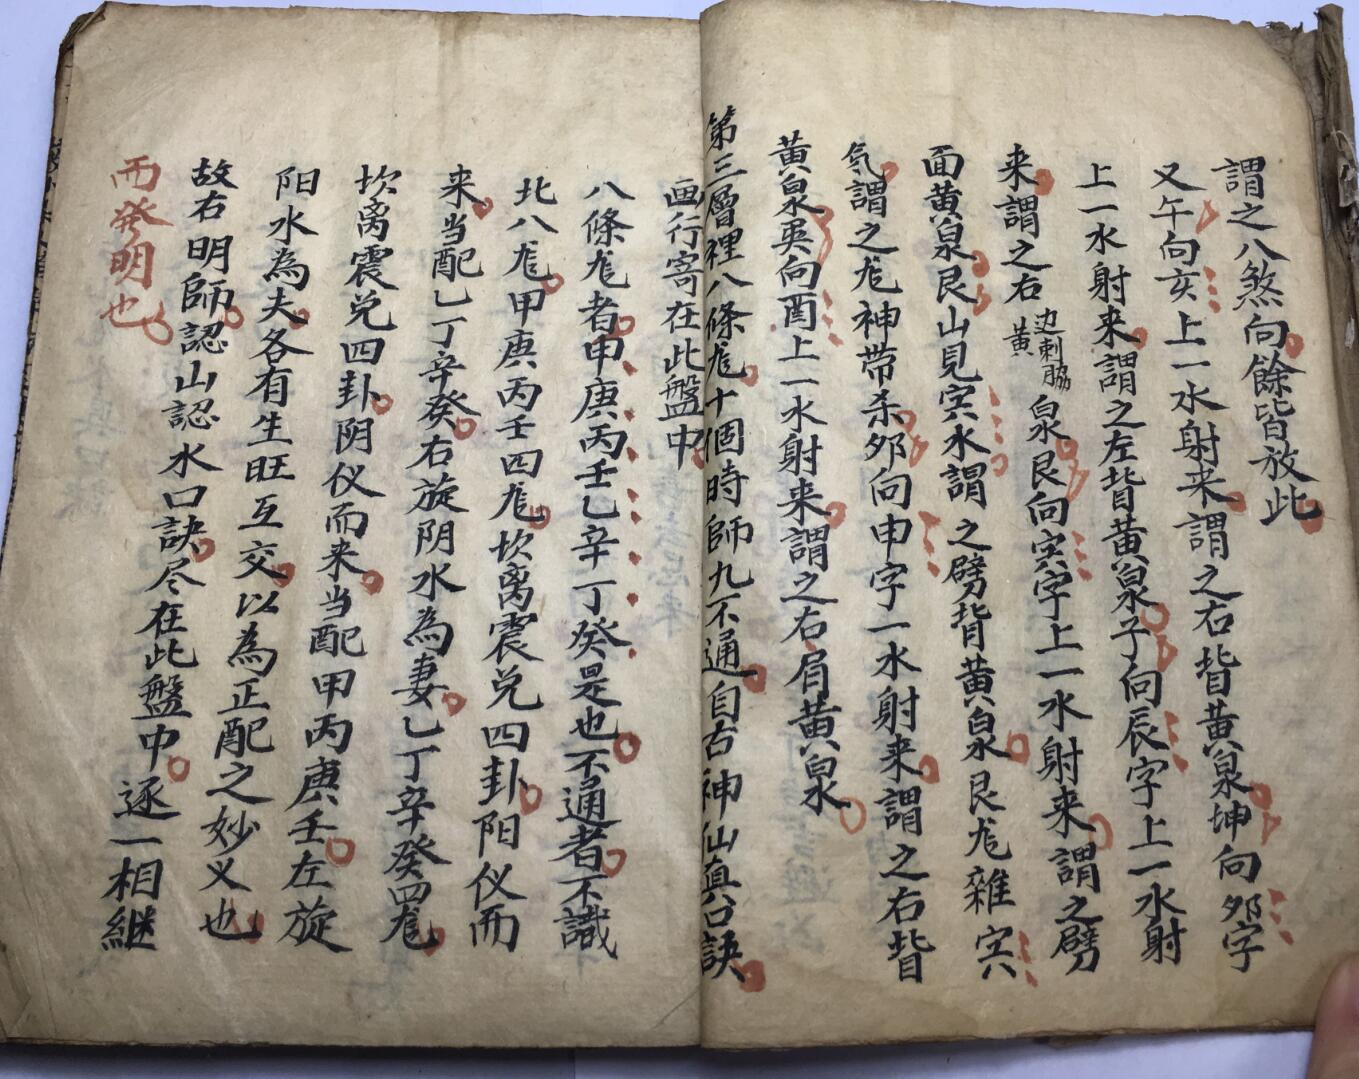 謂之八煞向餘皆放此
又午向亥上一水射来謂之右背黄泉坤向夘字
上一水射来謂之左背黄泉子向辰字上一水射
来謂之右边刺脇黄泉艮向寅字上一水射来謂之劈
面黄泉艮山見寅水謂之劈背黄泉艮龙雜寅
気謂之龙神帶杀夘向申字一水射来謂之右背
黄泉巽向酉上一水射来謂之右肩黄泉
第三層裡八條龙十個時師九不通自古神仙真口訣
画行寄在此盤中
八條龙者甲庚丙壬乙辛丁癸是也不通者不識
北八龙甲庚丙壬四龙坎离震兑四卦阳仪而
来当配乙丁辛癸右旋阴水為妻乙丁辛癸四龙
坎离震兑四卦阴仪而来当配甲丙庚壬左旋
阳水為夫各有生旺互交以為正配之妙义也
故右明師認山認水口訣尽在此盤中逐一相継
而發明也